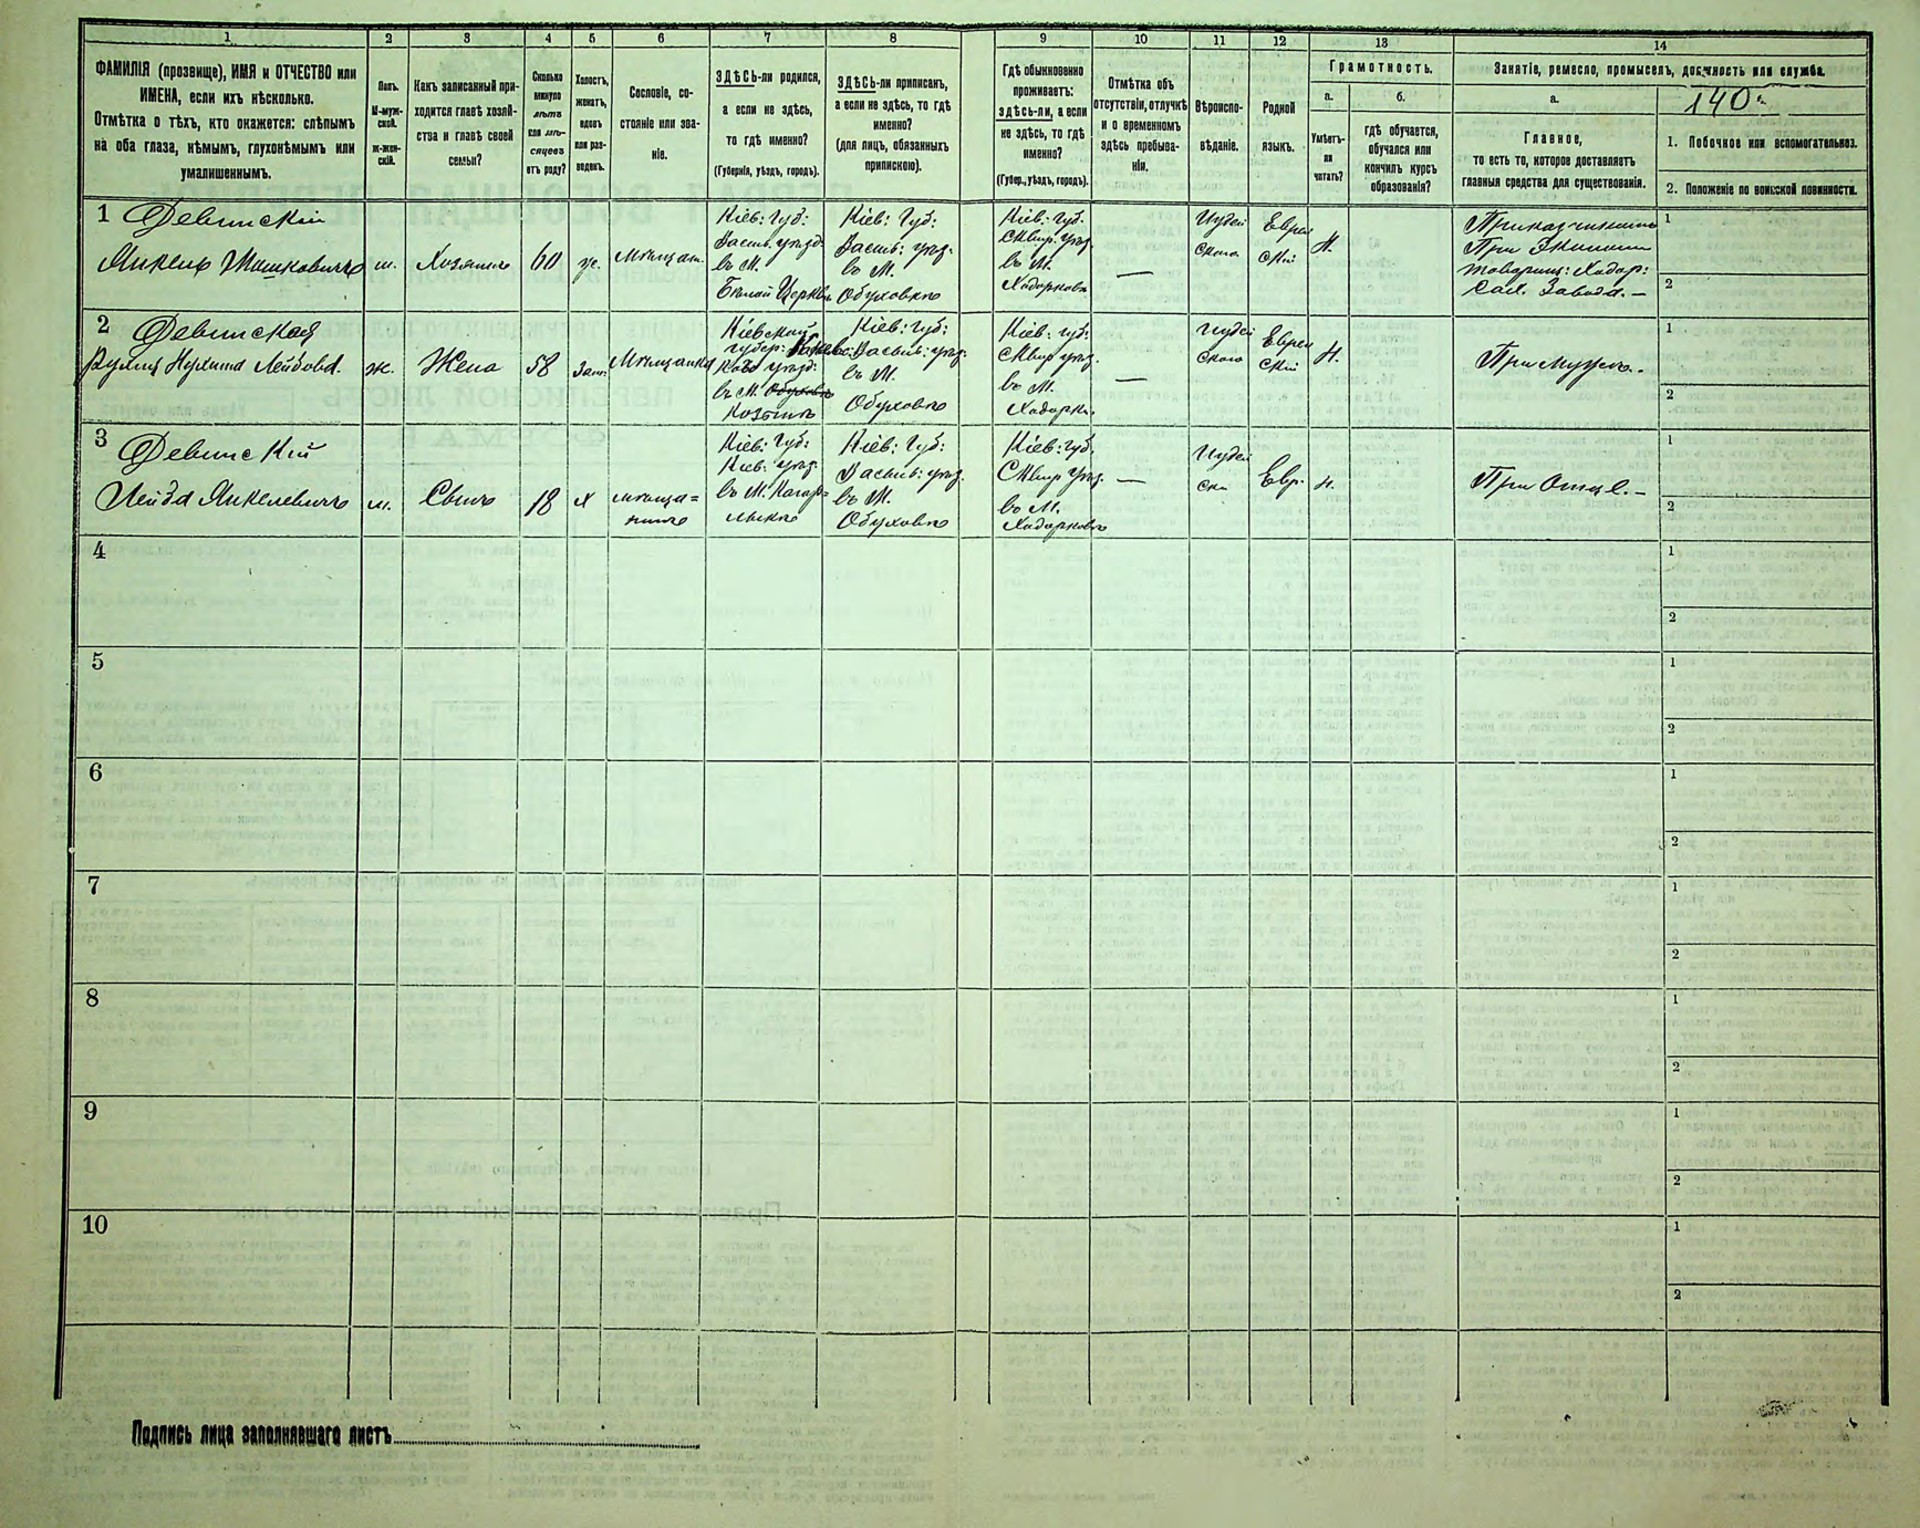 1
2
3
4
5
6
7
8
9
10
11
12
13
14
ФАМИЛІЯ (прозвище), ИМЯ и ОТЧЕСТВО или
ИМЕНА, если ихъ нѣсколько.
Отмѣтка о тѣхъ, кто окажется: слѣпымъ
на оба глаза, нѣмымъ, глухонѣмымъ или
умалишеннымъ.
Полъ.
М-муж-
ской.
ж-жен-
скій.
Какъ записанный при-
ходится главѣ хозяй-
ства и главѣ своей
семьи?
Сколько
минуло
лѣтъ
или мѣ-
сяцевъ
отъ роду?
Холостъ,
женатъ,
вдовъ
или раз-
веденъ.
Сословіе, со-
стояніе или зва-
ніе.
ЗДѢСЬ-ли родился,
а если не здѣсь,
то гдѣ именно?
(Губернія, уѣздъ, городъ).
ЗДѢСЬ-ли приписанъ,
а если не здѣсь, то гдѣ
именно?
(для лицъ, обязанныхъ
припискою).
Гдѣ обыкновенно
проживаетъ:
здѣсь-ли, а если
не здѣсь, то гдѣ
именно?
(Губер., уѣздъ, городъ).
Отмѣтка объ
отсутствіи, отлучкѣ
и о временномъ
здѣсь пребыва-
ніи.
Вѣроиспо-
вѣданіе.
Родной
языкъ.
Грамотность.
а.
Умѣетъ-
ли
читать?
б.
гдѣ обучается,
обучался или
кончилъ курсъ
образованія?
Занятіе, ремесло, промыселъ, должность или служба.
а.
Главное,
то есть то, которое доставляетъ
главныя средства для существованія.
140
1. Побочное или вспомогательное.
2. Положеніе по воинской повинности.
1 Девинскій
Янкель Мошковичъ
м.
Хозяинъ
60
ж.
Мѣщан.
Кіев: Губ:
Васил. уѣзд.
въ М.
Бѣлой Церкви
Кіев: Губ:
Васил: уѣз.
въ М.
Обуховкѣ
Кіев: Губ.
Сквир. уѣз.
въ М.
Ходорковѣ
—
Иудей
ского
Еврей
скій
Н.
При
товарищ: Ходор:
Сах. Завода. —
1
2
2 Девинская
Лейбова.
ж.
Жена
58
Зам.
Мѣщанка
Кіевской
губер:
уѣзд.
въ М.
Кіев: Губ:
Васил: уѣз.
въ М.
Обуховкѣ
Кіев: Губ:
Сквир уѣз.
въ М.
Ходорк.
—
Иудей
ского
Еврей
скій
Н.
При мужѣ.
1
2
3 Девинскій
Лейза Янкелевичъ
м.
Сынъ
18
х
мѣща=
нинъ
Кіев: Губ:
Кіев: уѣз.
въ М. Кагар=
лыкѣ
Кіев: Губ:
Васил: уѣз.
въ М.
Обуховкѣ
Кіев: Губ.
Сквир уѣз.
въ М.
Ходорковѣ
—
Иудей
ск
Евр.
Н.
При Отцѣ. —
1
2
4
1
2
5
1
2
6
1
2
7
1
2
8
1
2
9
1
2
10
1
2
Подпись лица заполнявшаго листъ